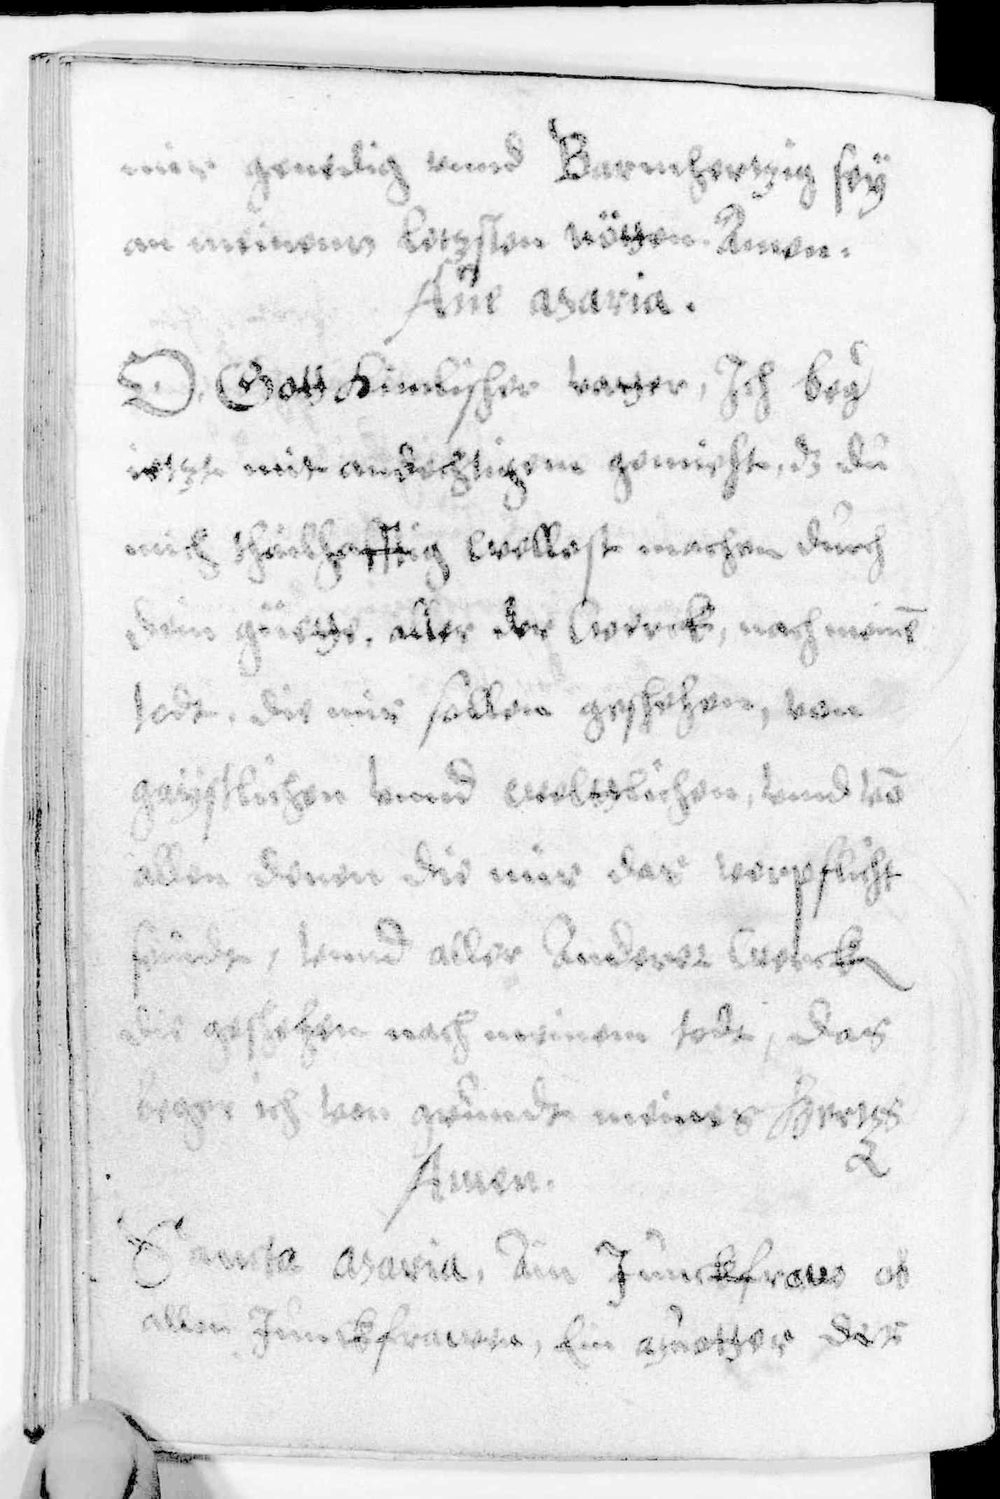 mir genedig vnnd Barmhertzig sey
an meinenn letzsten nötten. Amen.
Aue Maria.
O Gott Himlischer vatter, Ich beg
ietzt mit andechtigem gemieht, dz du
mich thailhafftig wellest machen durch
dein güette, aller der werck, nach meinē
todt, die mir sollen geschehen, von
gaystlichen vnnd weltlichen, vnnd vō
allen denen die mir dar verpflicht
seindt, vnnd aller Anderer werck
die geschehen nach meinem todt, das
beger ich von grundt meines Hertzs
Amen.
Sancta Maria, Ain Junckfraw ob
allen Junckfrawen, Ein Muetter der